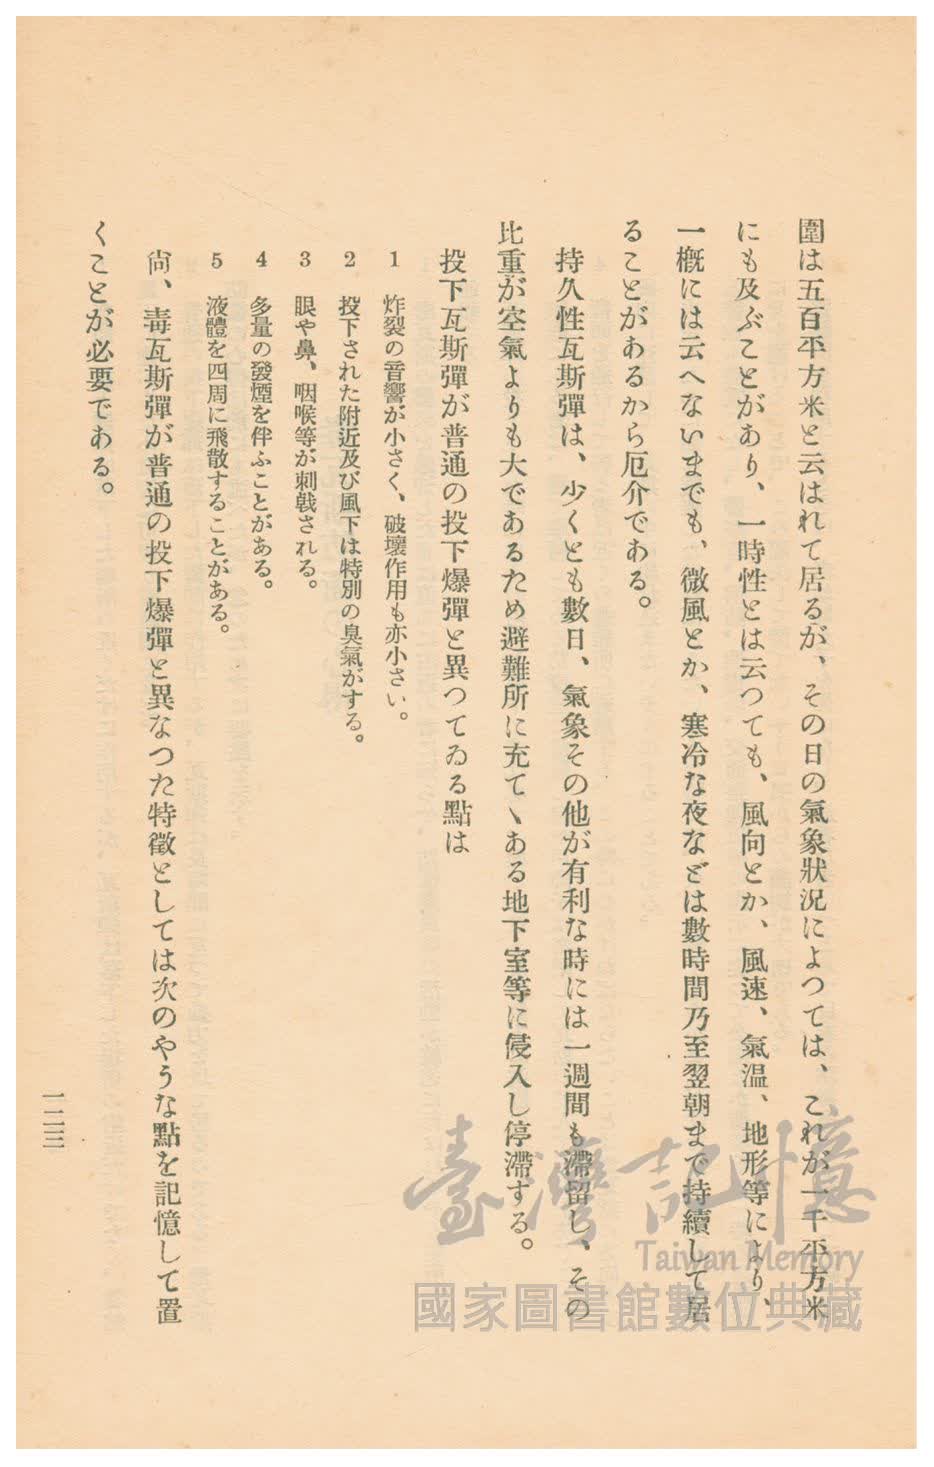 圍は五百平方米と云はれて居るが、その日の氣象狀況によつては、これが一千平方米
にも及ぶことがあり、一時性とは云つても、風向とか、風速、氣温、地形等により、
一槪には云へないまでも、微風とか、寒冷な夜などは數時間乃至翌朝まで持續して居
ることがあるから厄介である。
持久性瓦斯彈は、少くとも數日、氣象その他が有利な時には一週間も滯留し、その
比重が空氣よりも大であるため避難所に充てゝある地下室等に侵入し停滯する。
投下瓦斯彈が普通の投下爆彈と異つてゐる點は
1 炸裂の音響が小さく、破壞作用も亦小さい。
2 投下された附近及び風下は特別の臭氣がする。
3 眼や鼻、咽喉等が刺戟される。
4 多量の發煙を伴ふことがある。
5 液體を四周に飛散することがある。
尙、毒瓦斯彈が普通の投下爆彈と異なつた特徵としては次のやうな點を記憶して置
くことが必要である。
一二三
臺灣記憶
Taiwan Memory
國家圖書館數位典藏